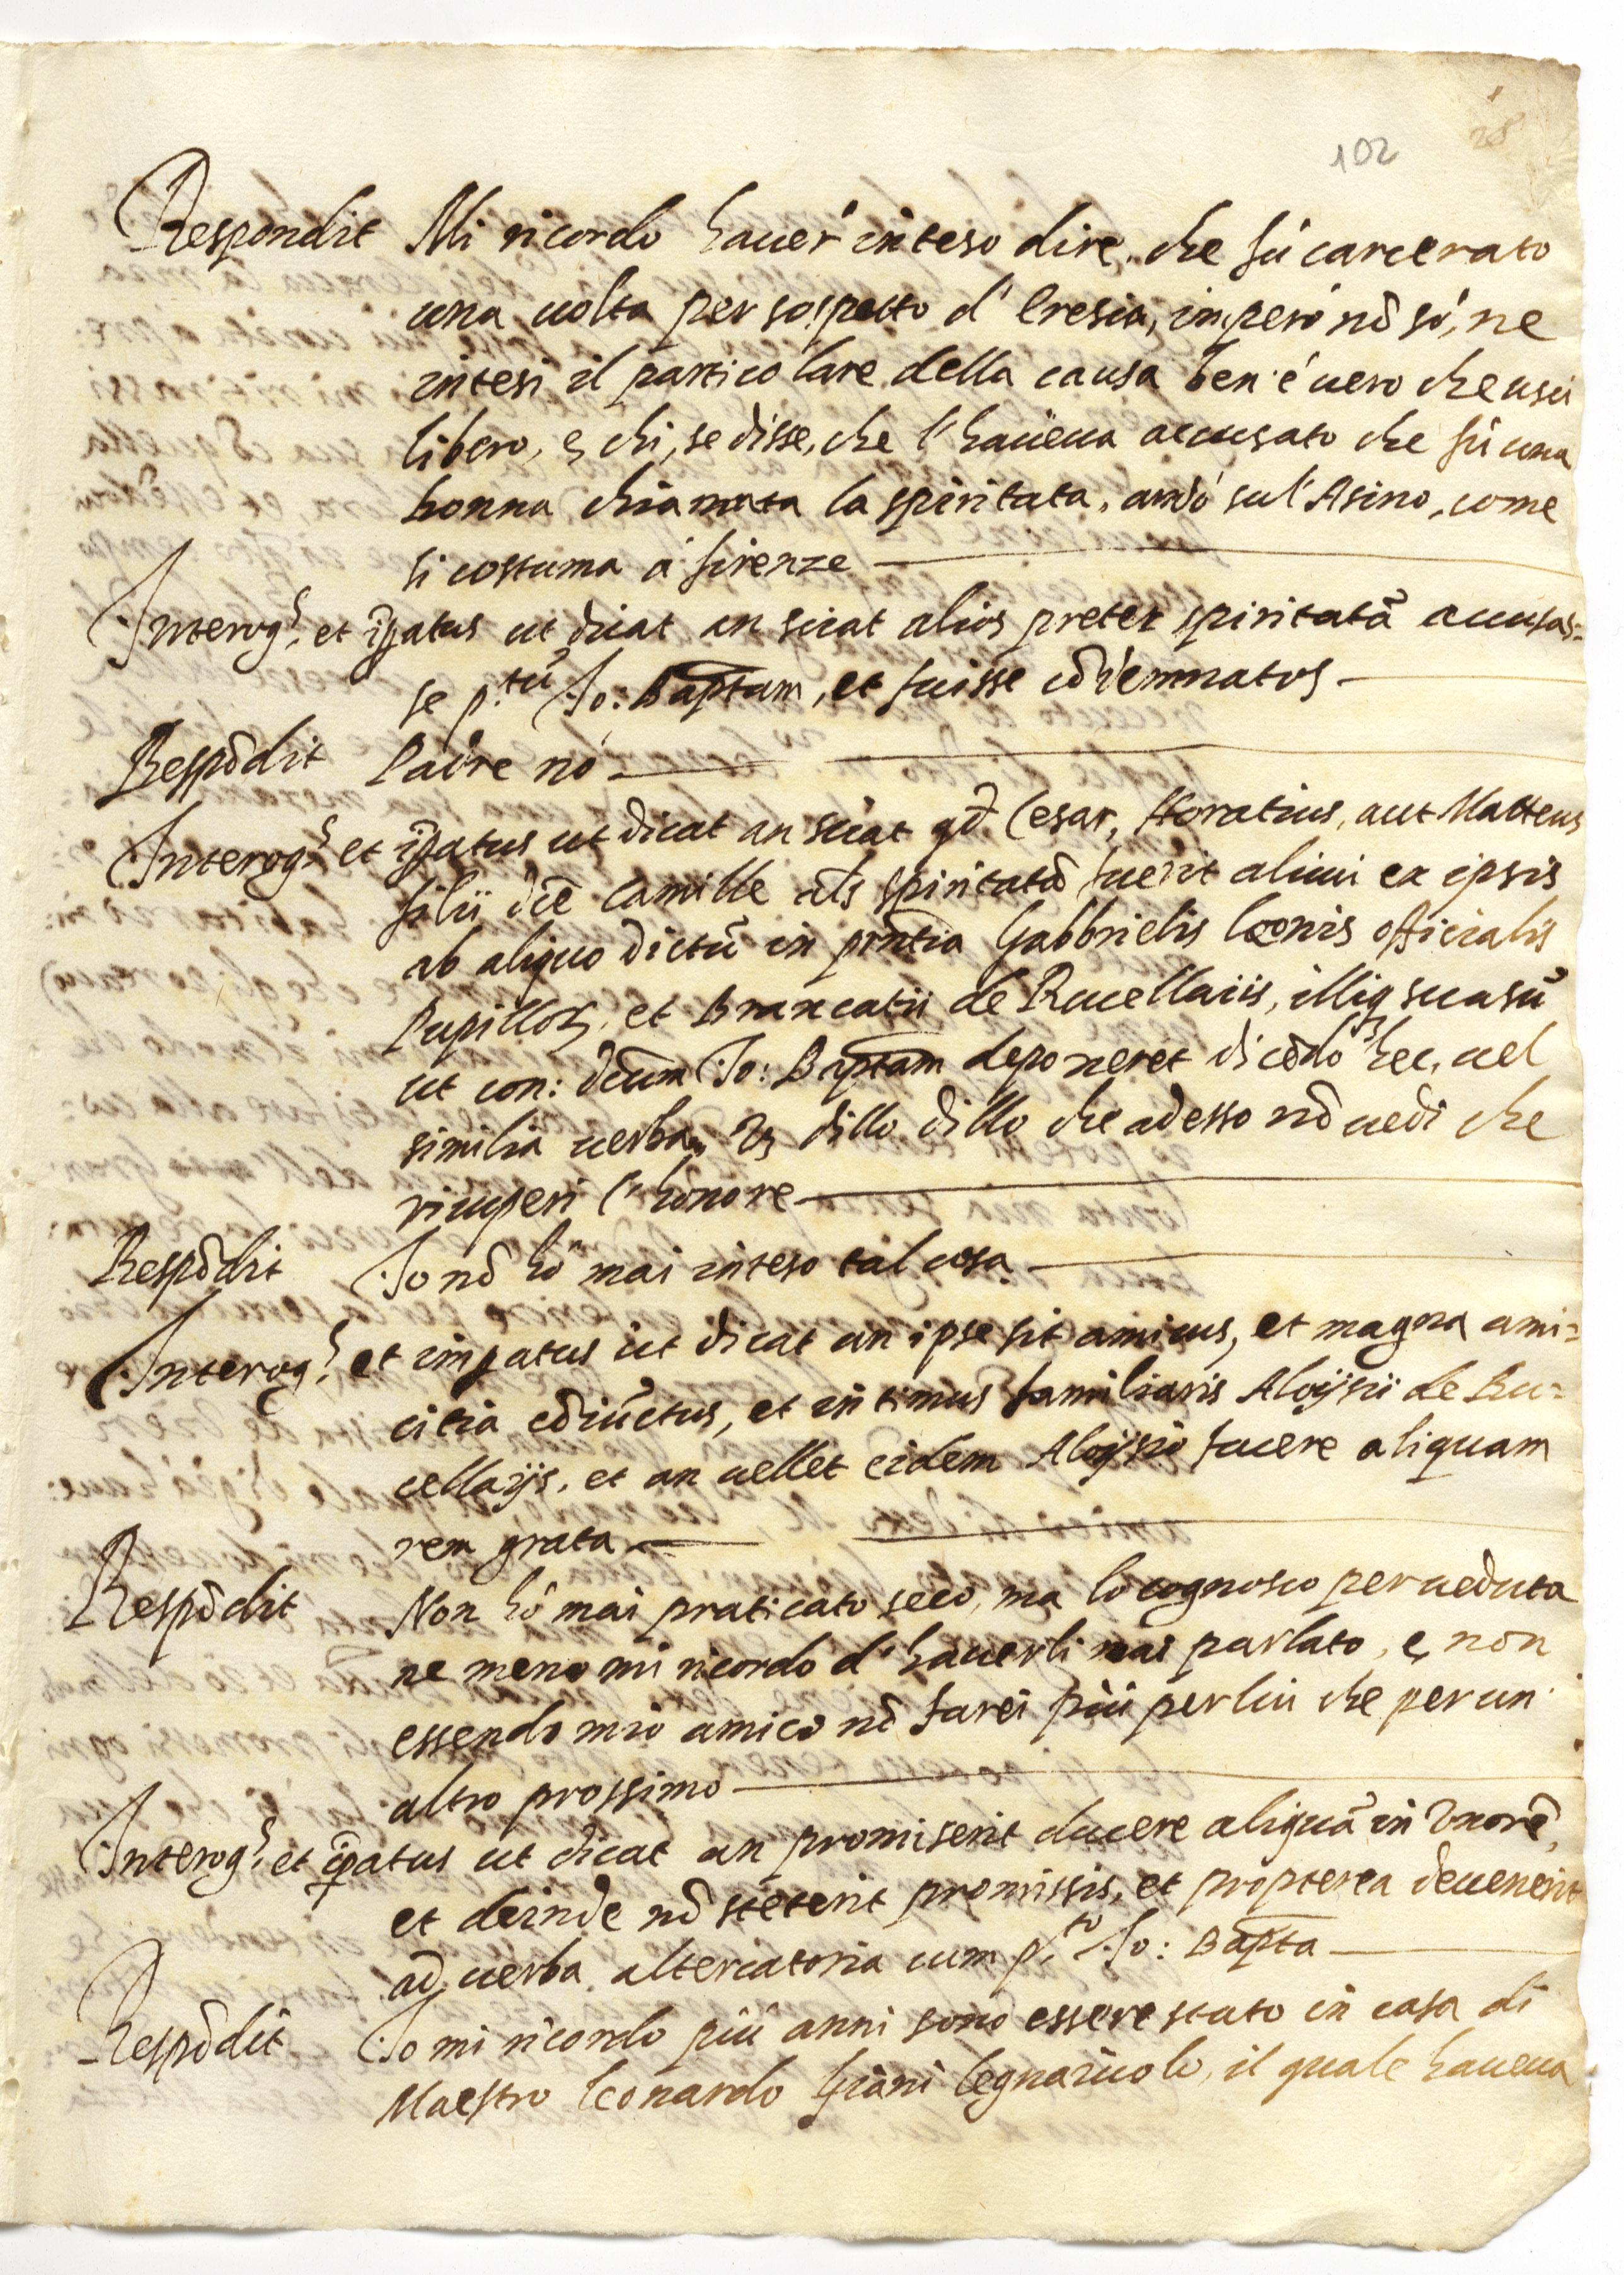 102
28
Respondit Mi ricordo hauer inteso dire, che fù carcerato
una uolta per sospetto d'Eresia, imperò nō sò, ne
intesi il particolare della causa ben'è uero che uscì
libero, e chi, se disse, che l'haueua accusato che fù una
donna chiamata la spiritata, andò sul'Asino, come
si costuma à firenze
Interog.s et īp̄atus ut dicat an sciat alios preter spiritatā accusas=
se p.tū Jo: Bap̄tam, et fuisse cōdemnatos
Respōdit Padre nò
Interog.s et īp̄atus ut dicat an sciat qd Cesar, Horatius, aut Matteus
filii dc̄e Camille al̄s spiritatā fuerit alicui ex ipsis
ab aliquo dictū in pn̄tia Gabbrielis leonis officialis
Pupilloꝝ, et Brancatii de Rucellaiis, illiq suasū
ut con: dc̄um Jo: Bap̄tam deponeret dicēdo hec, uel
similia uerba, dillo dillo che adesso nō uedi che
ricuperi l'honore
Respōdit Jo nō hò mai inteso tal cosa
Interog.s et imp̄atus ut dicat an ipse sit amicus, et magna ami=
citia cōiūctus, et intimus familiaris Aloijsii de Ru=
cellaijs, et an uellet eidem Aloijsio facere aliquam
rem grata
Respōdit Non hò mai praticato seco, ma lo cognosco per ueduta
ne meno mi ricordo d'hauerli mai parlato, e, non
essendo mio amico nō farei più per lui che per un'
altro prossimo
Interog.s et īp̄atus ut dicat an promiserit ducere aliquā in Uxorē,
et deinde nō steterit promissis, et propterea deuenerit
ad uerba altercatoria cum p.to Jo: Bap̄ta
Respōdit Jo mi ricordo più anni sono essere stato in casa di
Maestro Leonardo legnaiuolo, il quale haueua